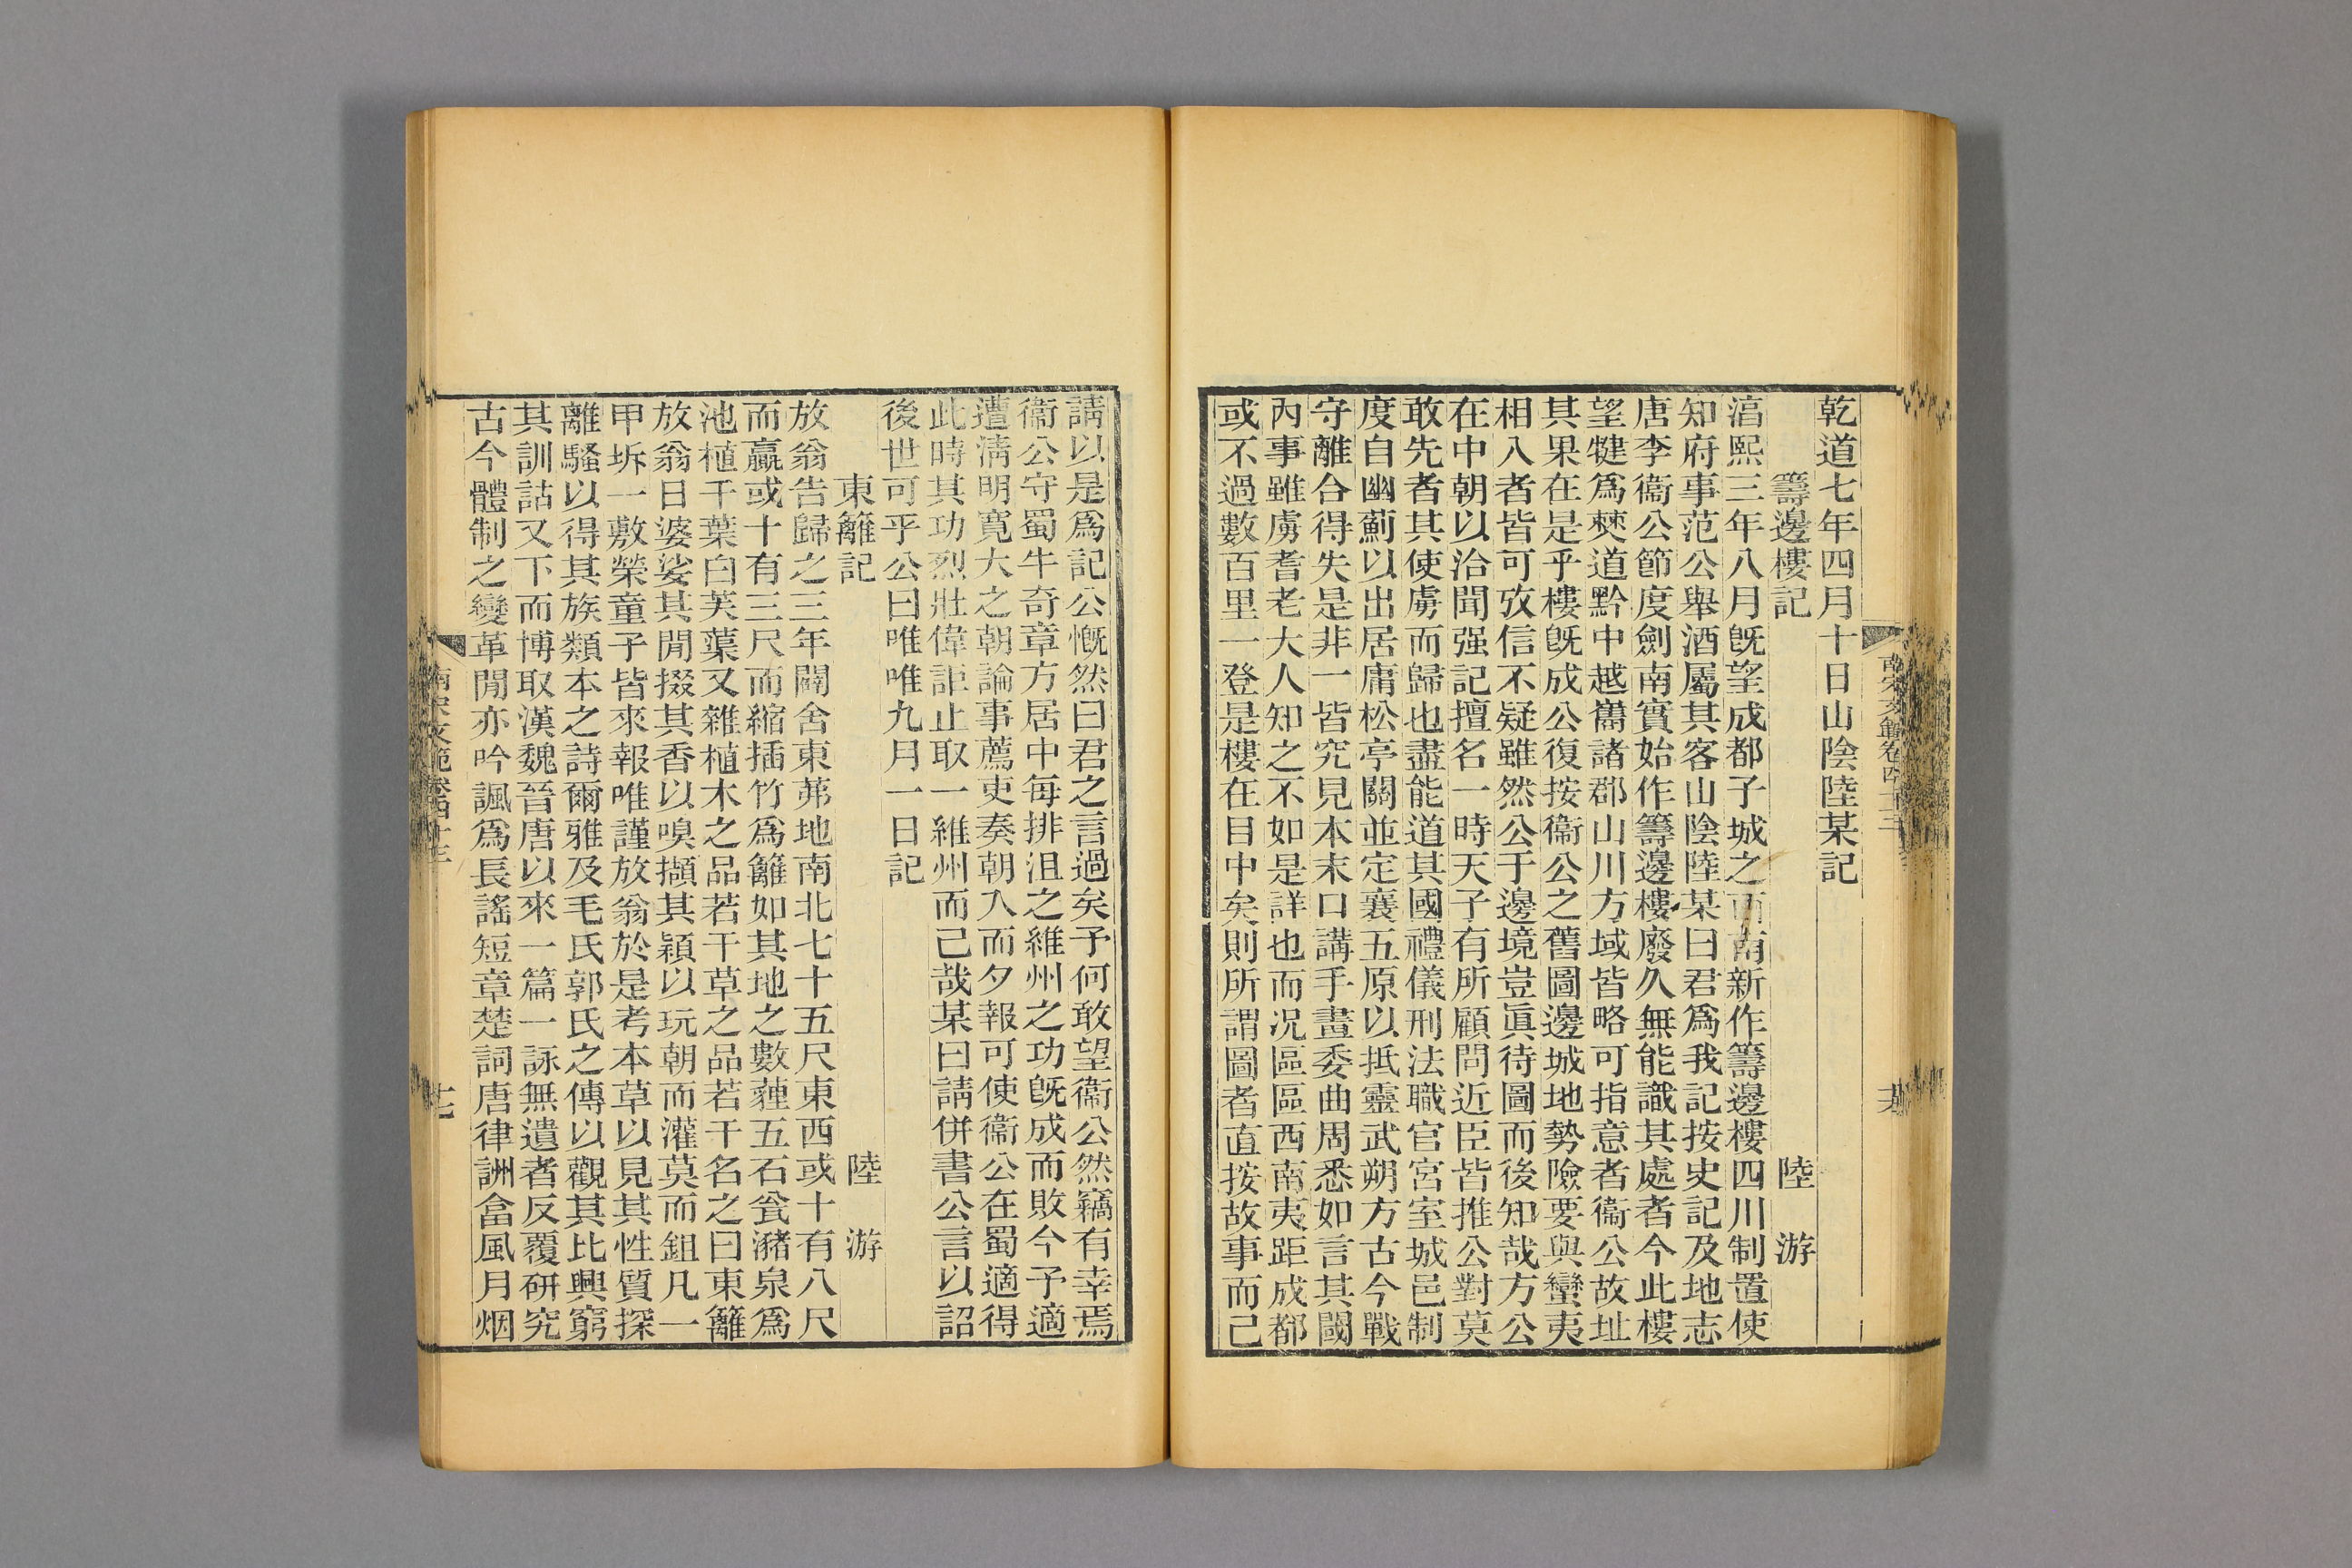 乾道七年四月十日山陰陸某記
籌邊樓記　陸　游
淳熙三年八月旣望成都子城之西南新作籌邊樓四川制置使
知府事范公舉酒屬其客山陰陸某曰君爲我記按史記及地志
唐李衞公節度劍南實始作籌邊樓廢久無能識其處者今此樓
望犍爲僰道黔中越嶲諸郡山川方域皆略可指意者衞公故址
其果在是乎樓旣成公復按衞公之舊圖邊城地勢險要與蠻夷
相入者皆可攷信不疑雖然公于邊境豈眞待圖而後知哉方公
在中朝以洽聞强記擅名一時天子有所顧問近臣皆推公對莫
敢先者其使虜而歸也盡能道其國禮儀刑法職官宮室城邑制
度自幽薊以出居庸松亭關並定襄五原以抵靈武朔方古今戰
守離合得失是非一皆究見本末口講手畫委曲周悉如言其國
內事雖虜耆老大人知之不如是詳也而况區區西南夷距成都
或不過數百里一登是樓在目中矣則所謂圖者直按故事而已
請以是爲記公慨然曰君之言過矣予何敢望衞公然竊有幸焉
衞公守蜀牛奇章方居中每排沮之維州之功旣成而敗今予適
遭淸明寬大之朝論事薦吏奏朝入而夕報可使衞公在蜀適得
此時其功烈壯偉詎止取一維州而已哉某曰請併書公言以詔
後世可乎公曰唯唯九月一日記
東籬記　陸　游
放翁告歸之三年闢舍東茀地南北七十五尺東西或十有八尺
而贏或十有三尺而縮插竹爲籬如其地之數薶五石瓮瀦泉爲
池植千葉白芙蕖又雜植木之品若干草之品若干名之曰東籬
放翁日婆娑其閒掇其香以嗅擷其穎以玩朝而灌莫而鉏凡一
甲坼一敷榮童子皆來報唯謹放翁於是考本草以見其性質探
離騷以得其族類本之詩爾雅及毛氏郭氏之傳以觀其比興窮
其訓詁又下而博取漢魏晉唐以來一篇一詠無遺者反覆硏究
古今體制之變革閒亦吟諷爲長謠短章楚詞唐律詶畣風月烟
南宋文範卷四十三